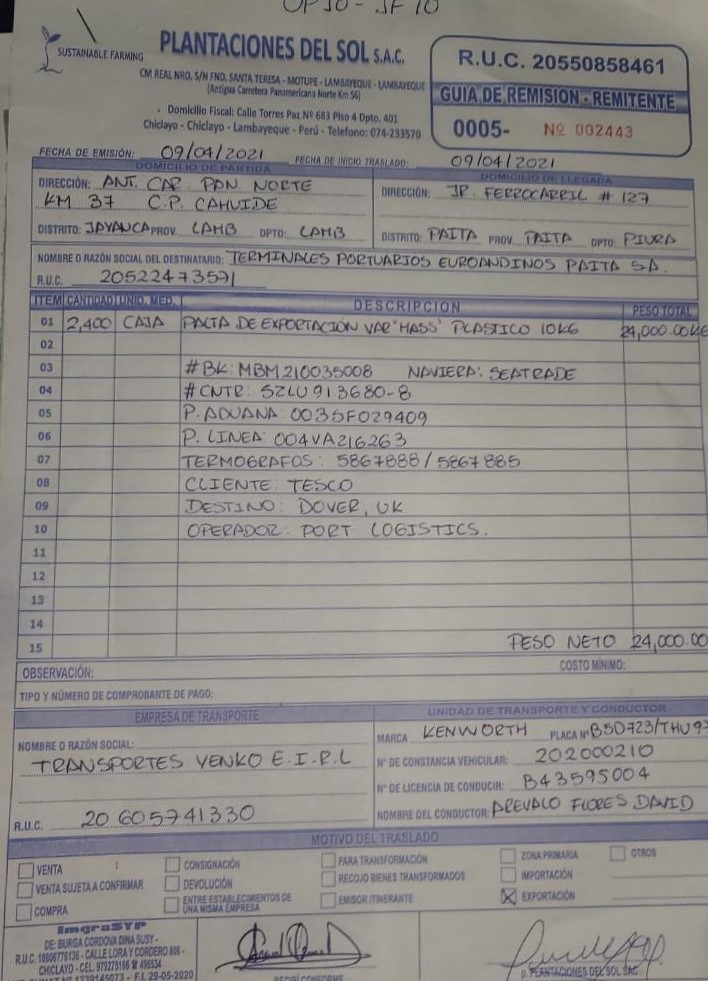 OP 50 - JF 10
SUSTAINABLE FARMING
PLANTACIONES DEL SOL S.A.C.
CM REAL NRO. S/N FND. SANTA TERESA - MOTUPE - LAMBAYEQUE - LAMBAYEQUE
(Antigua Carretera Panamericana Norte Km 56)
Domicilio Fiscal: Calle Torres Paz Nº 683 Piso 4 Dpto. 401
Chiclayo - Chiclayo - Lambayeque - Perú - Telefono: 074-233570
R.U.C. 20550858461
GUIA DE REMISION - REMITENTE
0005- Nº 002443
FECHA DE EMISIÓN: 09/04/2021 FECHA DE INICIO TRASLADO: 09/04/2021
DOMICILIO DE PARTIDA
DIRECCIÓN: ANT. CAR. PAN. NORTE
KM 37 C.P. CAHUIDE
DISTRITO: JAYANCA PROV. LAMB DPTO: LAMB
DOMICILIO DE LLEGADA
DIRECCIÓN: JR. FERROCARRIL # 127
DISTRITO: PAITA PROV. PAITA DPTO: PIURA
NOMBRE O RAZÓN SOCIAL DEL DESTINATARIO: TERMINALES PORTUARIOS EUROANDINOS PAITA SA.
R.U.C. 20522473571
ITEM CANTIDAD UNID. MED. DESCRIPCION PESO TOTAL
01 2,400 CAJA PALTA DE EXPORTACIÓN VAR "HASS" PLASTICO 10KG 24,000.00KG
02
03 #BK: MBM210035008 NAVIERA: SEATRADE
04 #CNTR: SZLU913680-8
05 P. ADUANA: 0035F029409
06 P. LINEA: 004VA216263
07 TERMOGRAFOS: 5867888/5867885
08 CLIENTE: TESCO
09 DESTINO: DOVER, UK
10 OPERADOR: PORT LOGISTICS.
11
12
13
14
15 PESO NETO 24,000.00
OBSERVACIÓN: COSTO MÍNIMO:
TIPO Y NÚMERO DE COMPROBANTE DE PAGO:
EMPRESA DE TRANSPORTE
NOMBRE O RAZÓN SOCIAL:
TRANSPORTES VENKO E.I.R.L
R.U.C. 20605741330
UNIDAD DE TRANSPORTE Y CONDUCTOR
MARCA KENWORTH PLACA Nº B5D723/THU97
Nº DE CONSTANCIA VEHICULAR: 202000210
Nº DE LICENCIA DE CONDUCIR: B43595004
NOMBRE DEL CONDUCTOR: AREVALO FLORES DAVID
MOTIVO DEL TRASLADO
VENTA
VENTA SUJETA A CONFIRMAR
COMPRA
CONSIGNACIÓN
DEVOLUCIÓN
ENTRE ESTABLECIMIENTOS DE
UNA MISMA EMPRESA
PARA TRANSFORMACIÓN
RECOJO BIENES TRANSFORMADOS
EMISOR ITINERANTE
ZONA PRIMARIA
IMPORTACIÓN
EXPORTACIÓN
OTROS
ImgraSYP
DE: BURGA CORDOVA DINA SUSY -
R.U.C. 16806776136 - CALLE LORA Y CORDERO 806 -
CHICLAYO - CEL. 979275166 # 496534
1239145073 - F.I. 29-05-2020
RECIBÍ CONFORME
p. PLANTACIONES DEL SOL SAC